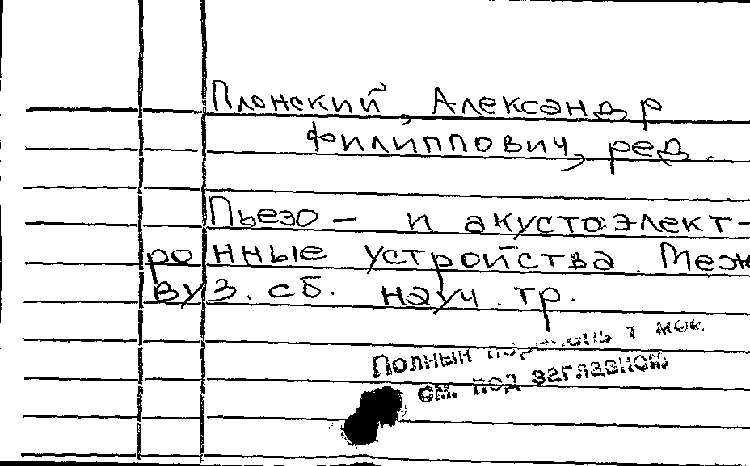 Плонский, Александр
Филиппович, ред.
Пьезо- и акустоэлект-
ронные устройства. Меж
вуз. сб. науч. тр.
Полный
см. под заглавной